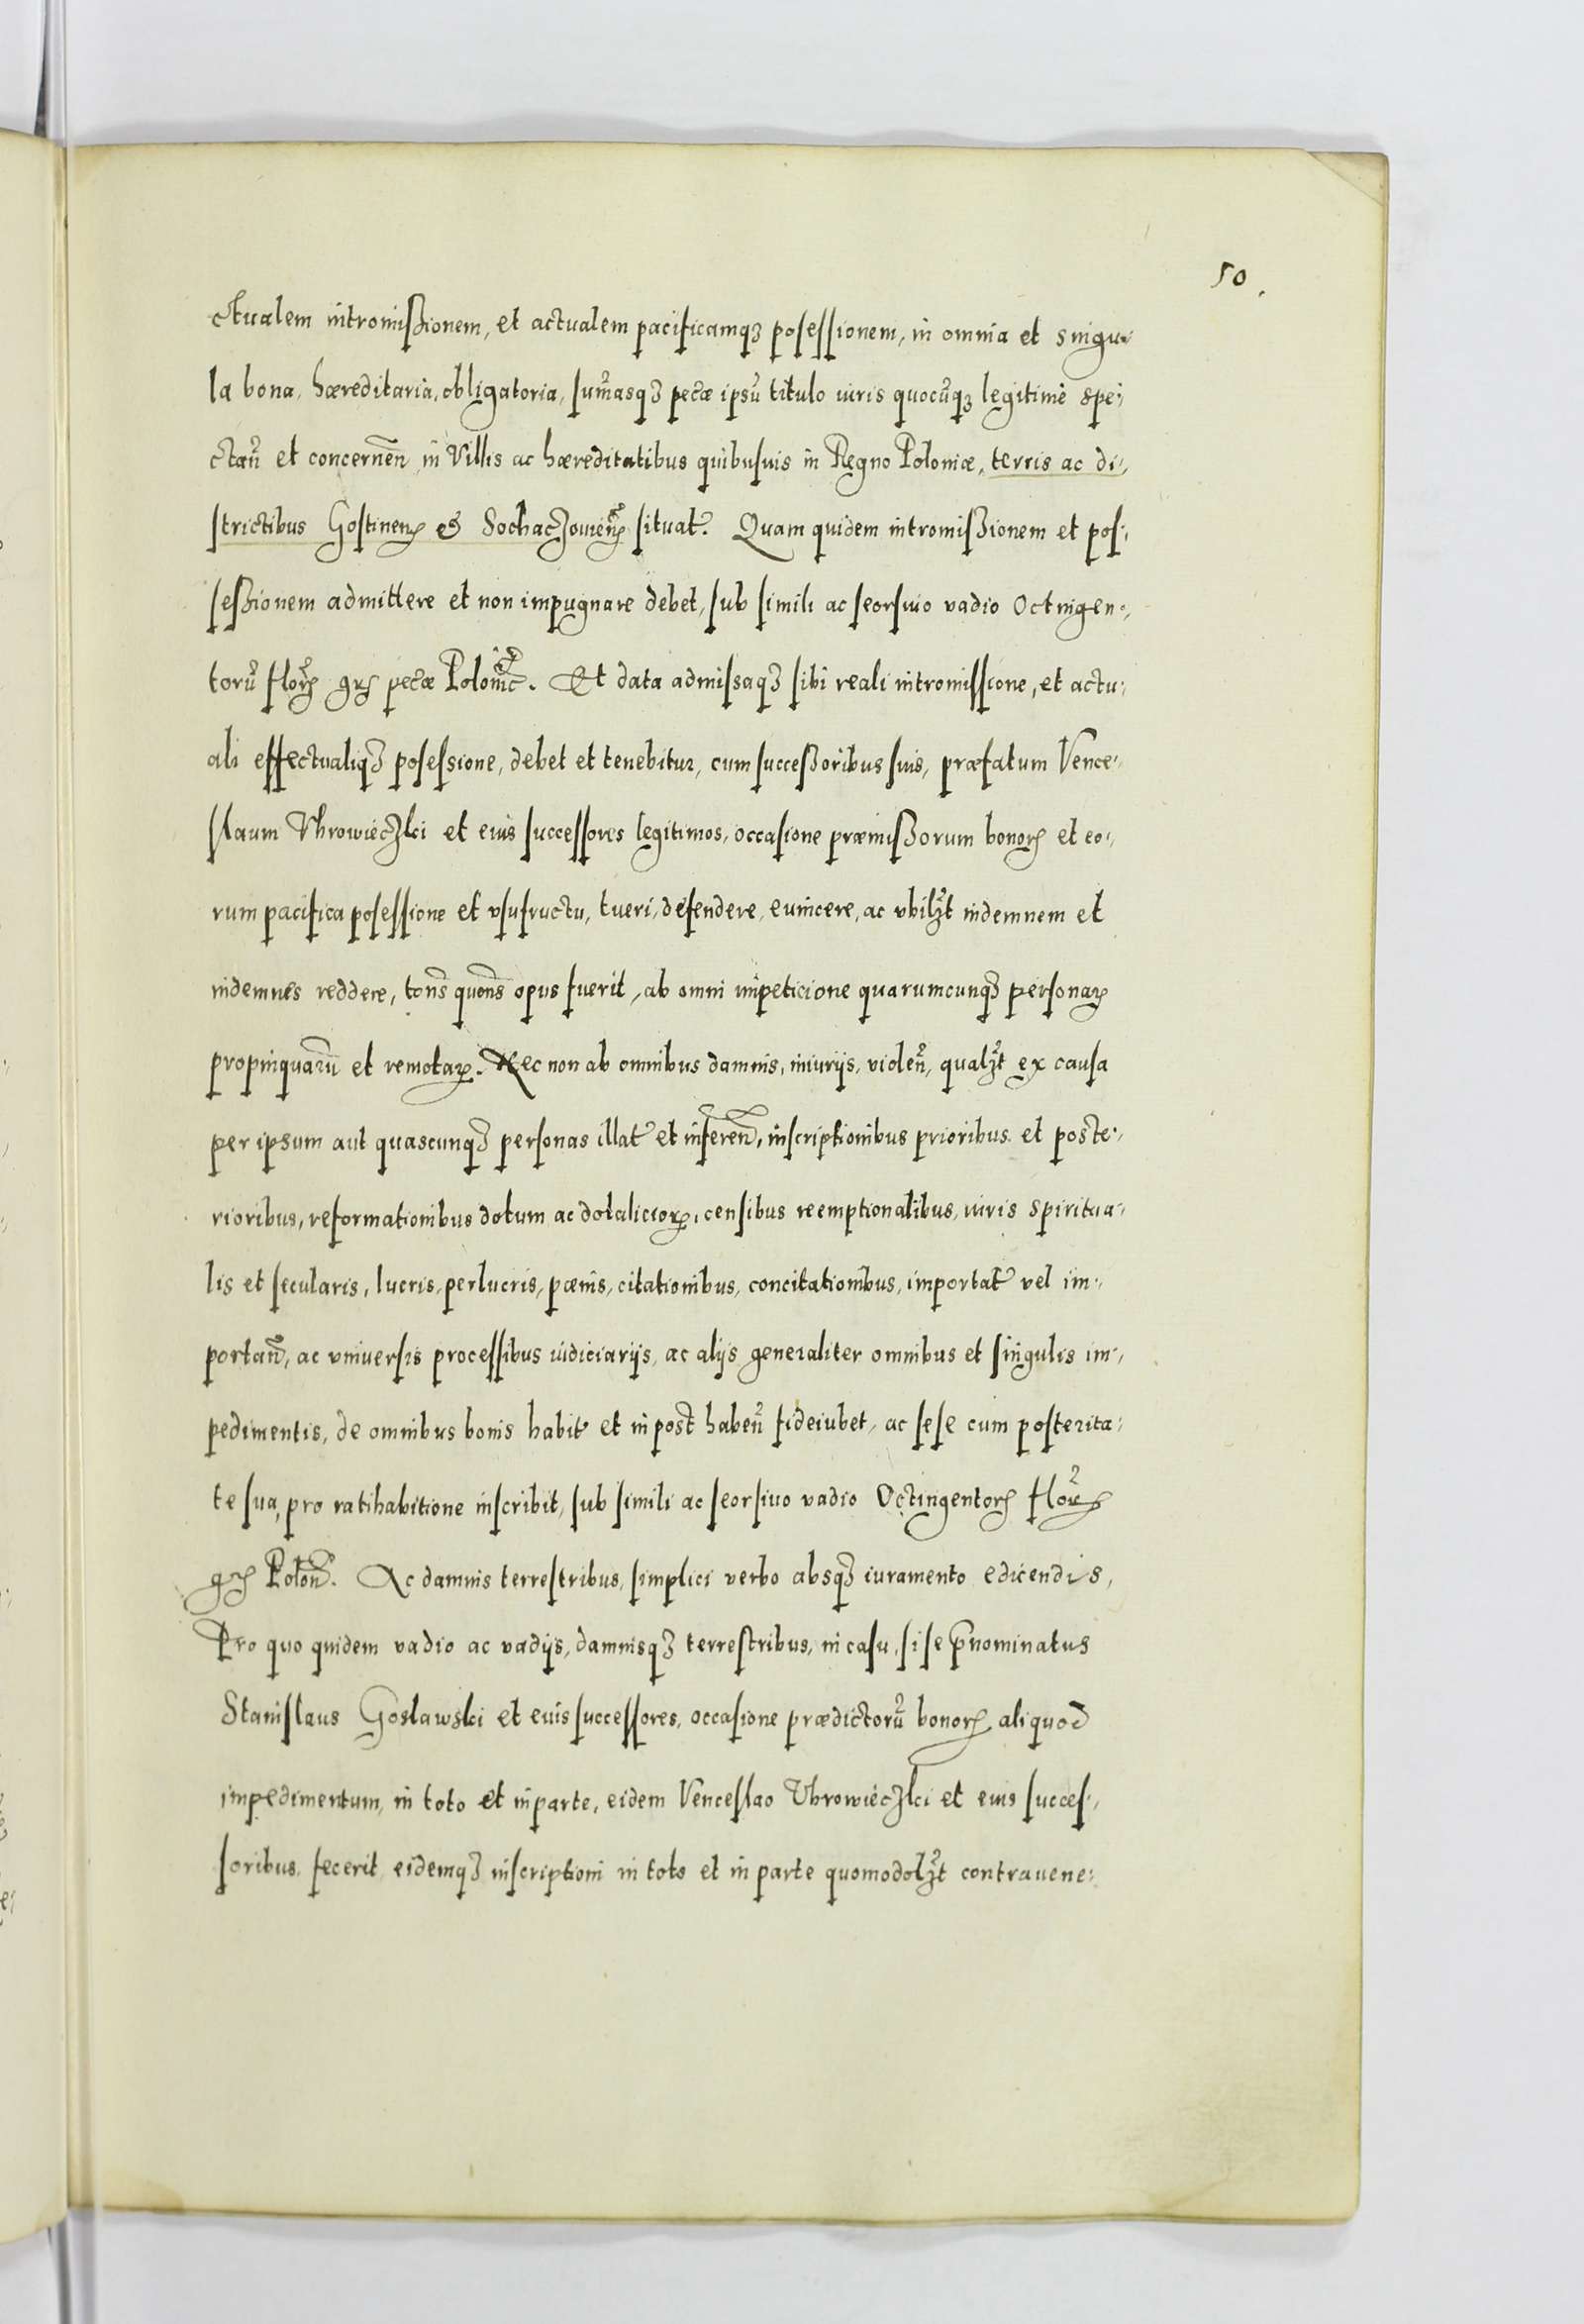 50.
ctualem intromißionem, et actualem pacificamqꝫ posessionem, in omnia et singu-
la bona, hæreditaria, obligatoria, sum̃asqꝫ pec̃æ ipsũ titulo iuris quocũqꝫ legitimè spe-
ctañ et concerneñ in Villis ac hæreditatibus quibusuis in Regno Poloniæ, terris ac di-
strictibus Gostineñ & Sochaczouieñ situat̃. Quam quidem intromißionem et pos-
seßionem admittere et non impugnare debet, sub simili ac seorsiuo vadio Octingen-
torũ floꝝ gꝝ pec̃æ Polonic̃. Et data admissaqꝫ sibi reali intromissione, et actu-
ali effectualiqꝫ posessione, debet et tenebitur, cum succeßoribus suis, præfatum Vence-
slaum Vhrowieczki et eius successores legitimos, occasione præmißorum bonoꝝ et eo-
rum pacifica posessione et vsufructu, tueri, defendere, euincere, ac vbilꝫt indemnem et
indemnes reddere, tons̃ quons̃ opus fuerit, ab omni impeticione quarumcunqꝫ personaꝝ
propinquarũ et remotaꝝ. Nec non ab omnibus damnis, iniurijs, violeñ, qualꝫt ex causa
per ipsum aut quascunqꝫ personas illat̃ et infereñ, inscriptionibus prioribus et poste-
rioribus, reformationibus dotum ac dotalicioꝝ, censibus reemptionalibus, iuris spiritua-
lis et secularis, lucris, perlucris, pænis, citationibus, concitationibus, importat̃ vel im-
portañ, ac vniuersis processibus iudiciarijs, ac alijs generaliter omnibus et singulis im-
pedimentis, de omnibus bonis habit̃ et in post̃ habeñ fideiubet, ac sese cum posterita-
te sua, pro ratihabitione inscribit, sub simili ac seorsiuo vadio Octingentoꝝ floꝝ
gꝝ Poloñ. Ac damnis terrestribus, simplici verbo absqꝫ iuramento edicendis,
Pro quo quidem vadio ac vadijs, damnisqꝫ terrestribus, in casu, si se p̃nominatus
Stanislaus Goslawski et eius successores, occasione prædictorũ bonoꝝ aliquod
impedimentum, in toto et in parte, eidem Venceslao Vhrowieczki et eius succes-
soribus fecerit eidemqꝫ inscriptioni in toto et in parte quomodolꝫt contrauene-